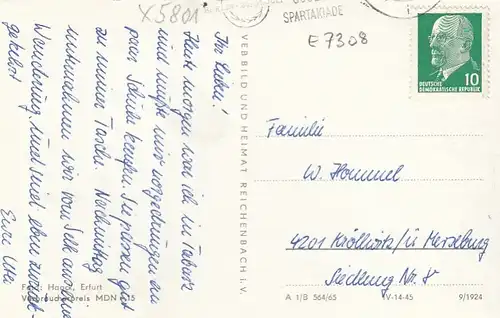 X5801
SPARTAKIADE
E7308
10
DEUTSCHE
DEMOKRATISCHE REPUBLIK
Ihr Lieben!
Heute morgen war ich in Tabarz
und mußte mir notgedrungen ein
paar Schuhe kaufen. Sie passen gut
zu meiner Tasche. Nachmittag
unternahmen wir vom Selb aus eine
Wanderung, und sind eben zurück-
gekehrt
Eure
VEB BILD UND HEIMAT REICHENBACH i. V.
Familie
W. Hommel
4201 Kröllwitz/ü Merseburg
Siedlung Nr. 8
Foto: Haack, Erfurt
Verbraucherpreis MDN
A 1/B 564/65
IV-14-45
9/1924